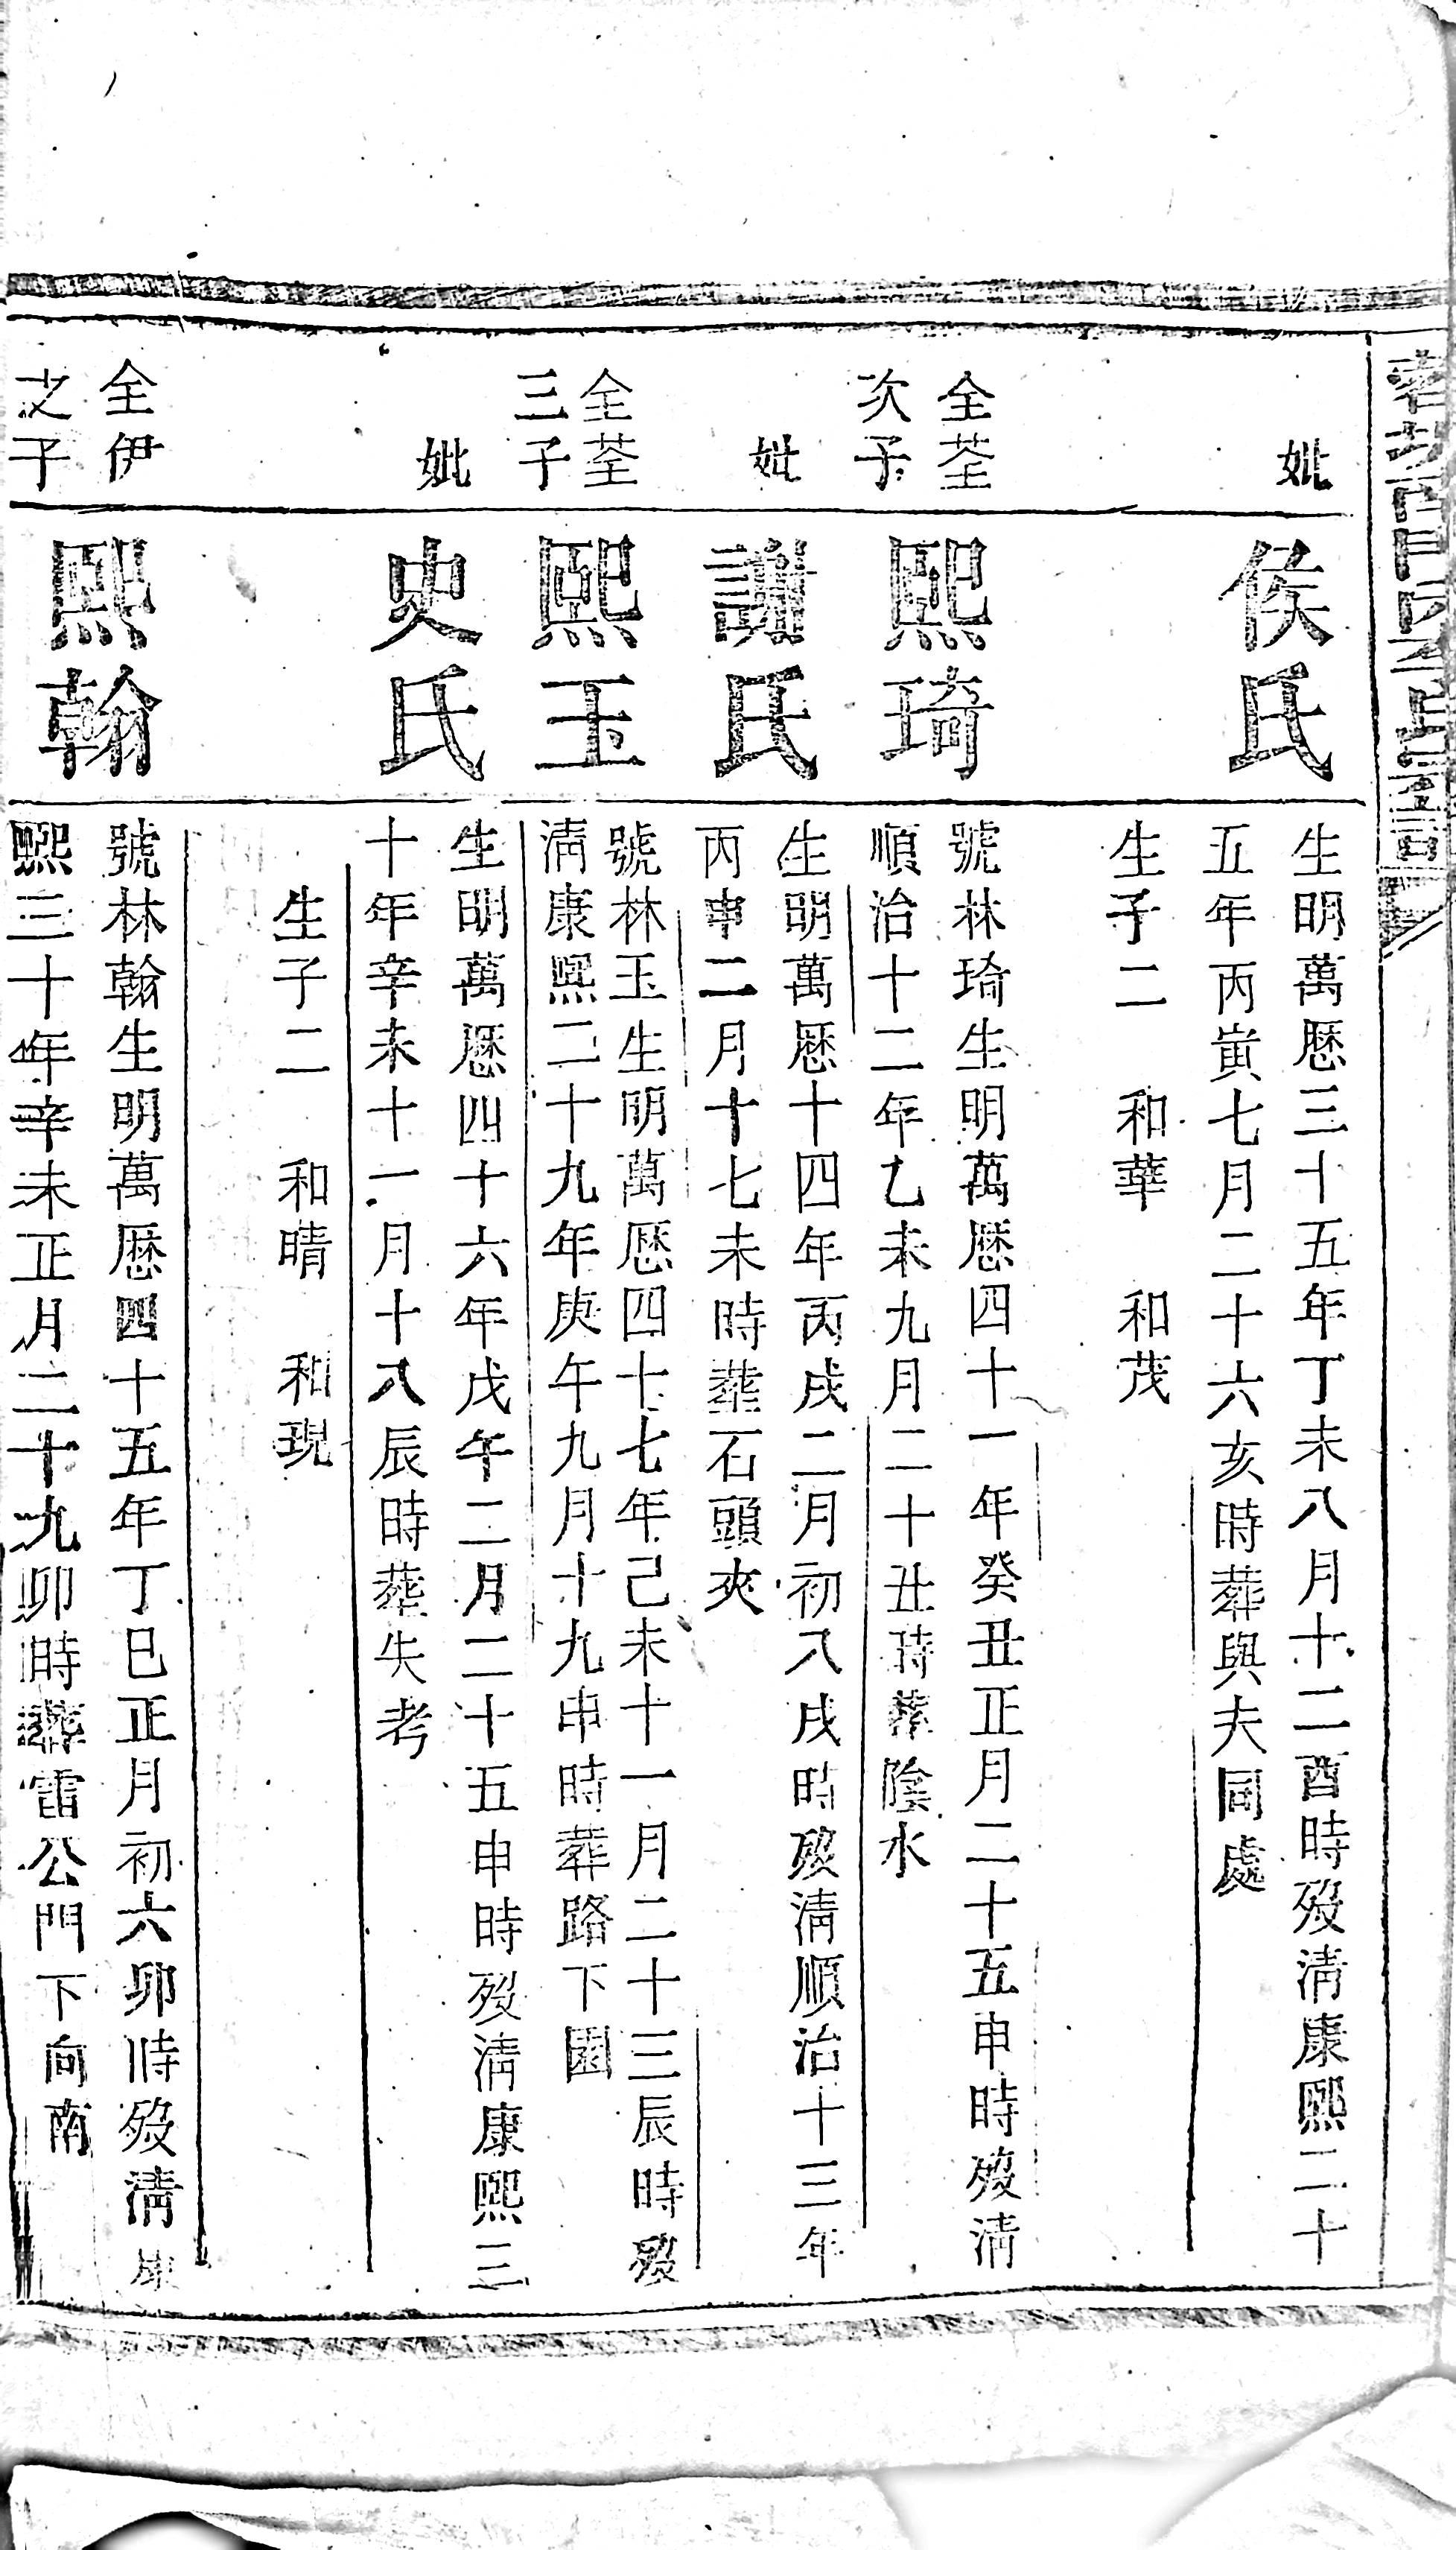 妣
侯氏
生明萬厯三十五年丁未八月十二酉時歿清康熙二十
五年丙寅七月二十六亥時葬與夫同處
生子二 和華 和茂
全荃
次子
熙琦
號林琦生明萬厯四十一年癸丑正月二十五申時歿清
順治十二年乙未九月二十丑時葬陰水
妣
謝氏
生明萬厯十四年丙戌二月初八戌時歿清順治十三年
丙申二月十七未時葬石頭夾
全荃
三子
熙玉
號林玉生明萬厯四十七年己未十一月二十三辰時歿
清康熙二十九年庚午九月十九申時葬路下園
妣
史氏
生明萬厯四十六年戊午二月二十五申時歿清康熙三
十年辛未十一月十八辰時葬失考
生子二 和晴 和現
全伊
之子
熙翰
號林翰生明萬厯四十五年丁巳正月初六卯時歿清康
熙三十年辛未正月二十九卯時葬雷公門下向南